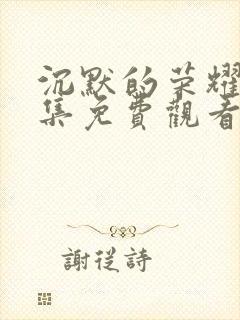 沉默的荣耀
集免費觀看
謝從詩